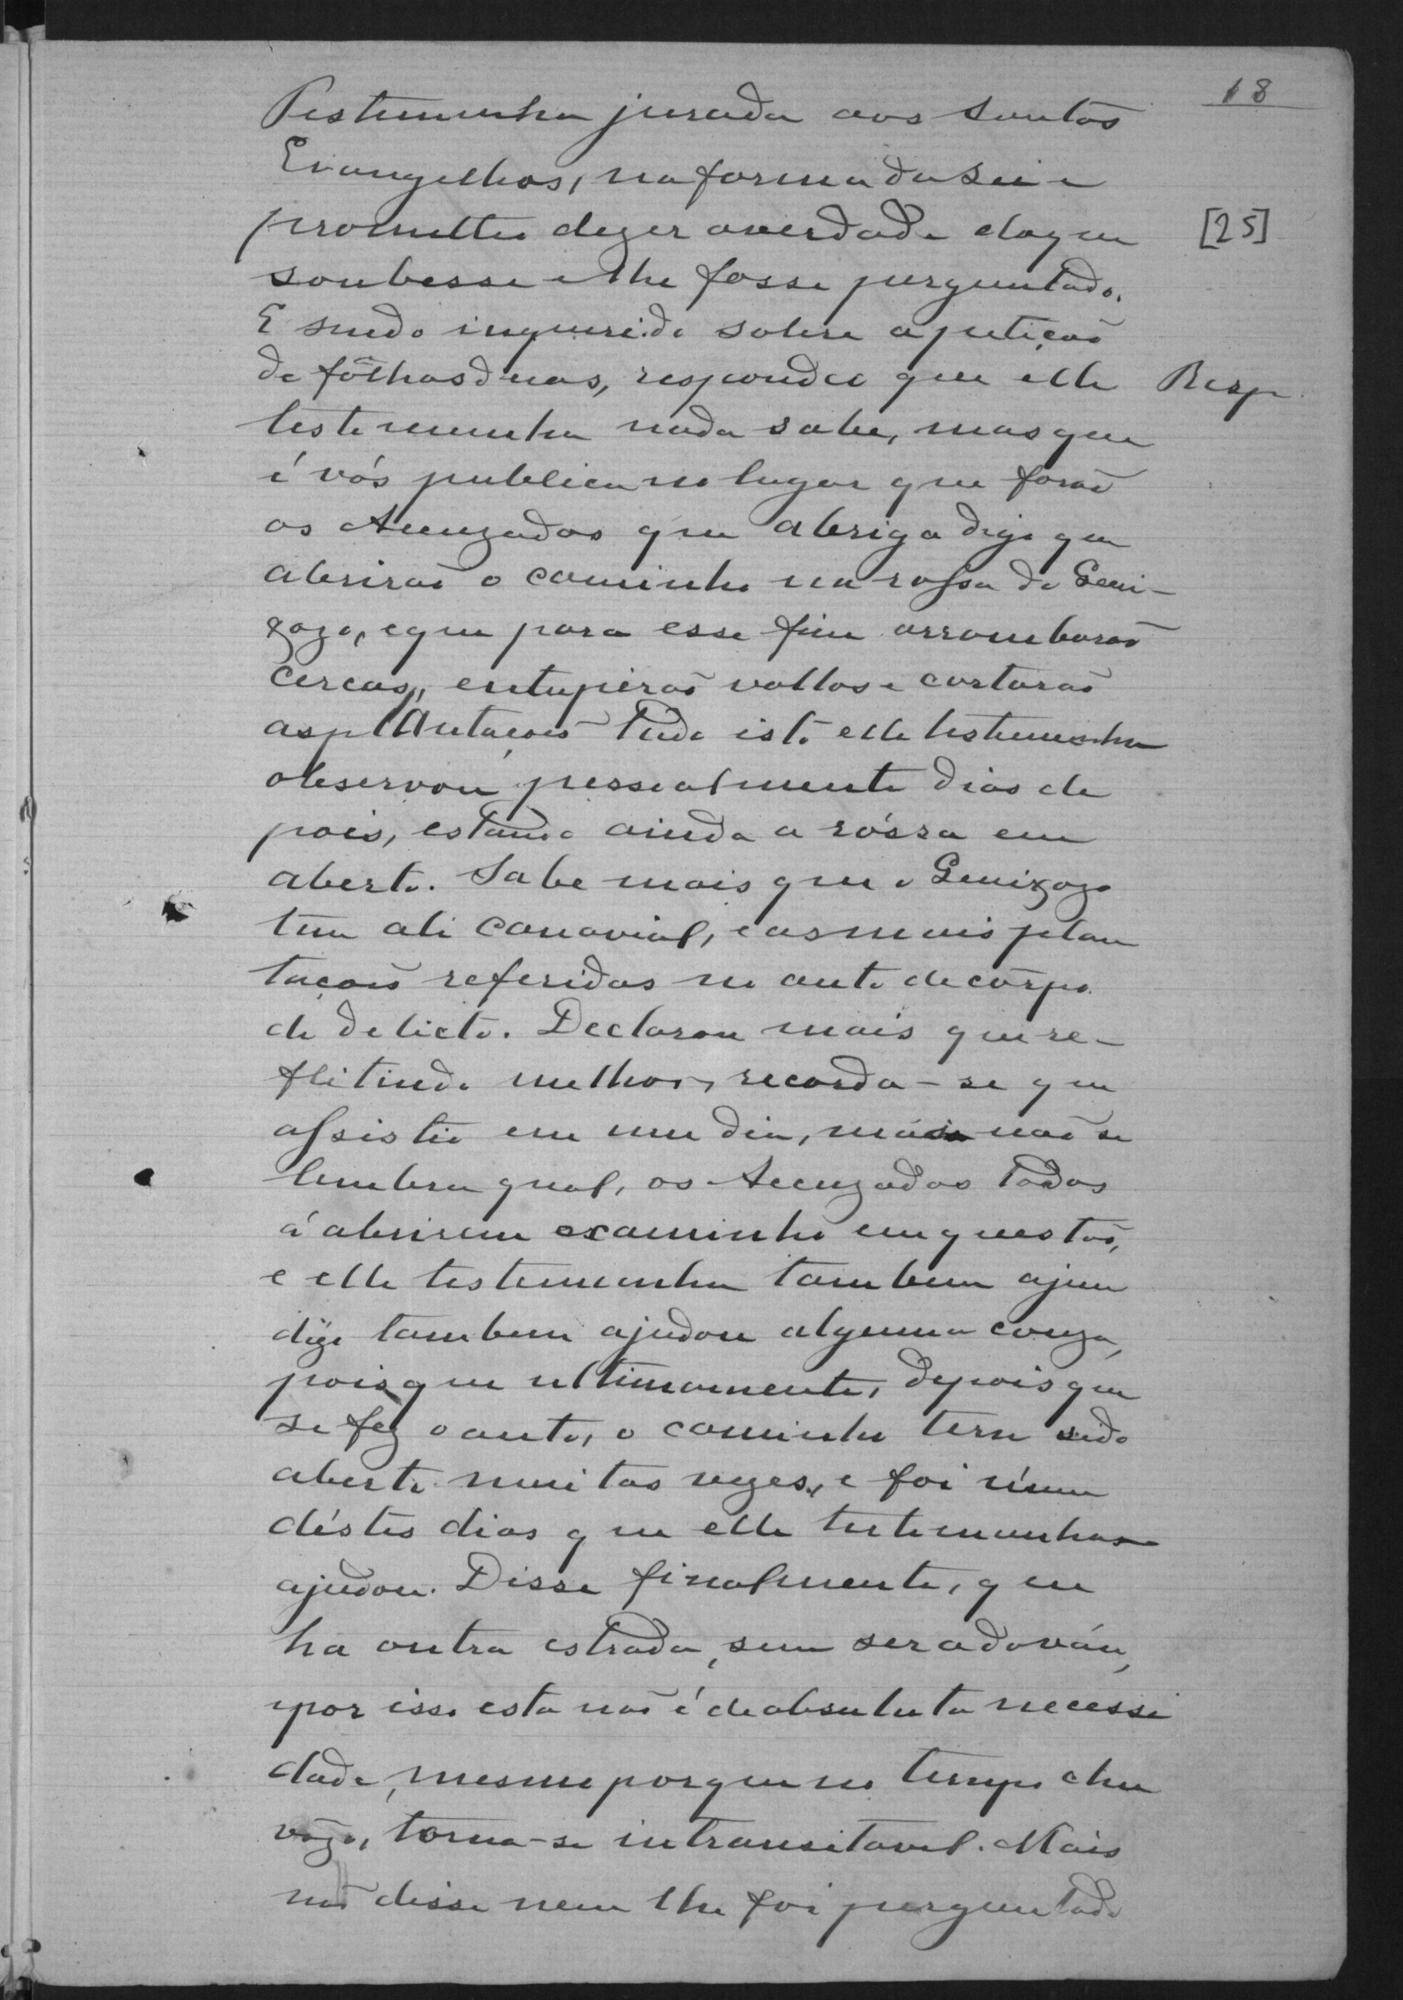 18
Testemunha jurada aos Santos
Evangelhos, na forma da Lei e
prometteo dezer averdade doque
soubesse e lhe fosse perguntado.
[25]
E sendo inquerido sobre apetição
de fôlhas duas, respondeo que elle
Resp.
testemunha nada sabe, mas que
é vós publica no lugar que forão
os Accuzados que abriga digo que
abrirão o caminho na rossa do Geni-
zozo, eque para esse fim arrombarão
cercas, entupirão vallos e cortarão
asplantaçoes Tudo isto elle testemunha
observou pessoalmente dias de
pois, estando ainda a róssa em
aberto. Sabe mais que o Genizozo
tem ali canavial, easmais plan
taçoes referidas no auto decorpo
de delicto. Declarou mais que re-
flitindo melhor, recorda-se que
assistio em um dia, mas não se
lembra qual, os Accuzados todos
á abrirem o caminho em questão,
e elle testemunha tambem ajun
digo tambem ajudou alguma couza,
pois que ultimamente, depois que
se fez o auto, o caminho tem sido
aberto muitas vezes, e foi n'um
déstes dias que elle testemunha
ajudou. Disse finalmente, que
ha outra estrada, sem ser adován,
epor isso esta não é de absuluta necessi
dade, mesmo porque no tempo chu
vozo, torna-se intransitavel. Mais
não disse nem lhe foi perguntado